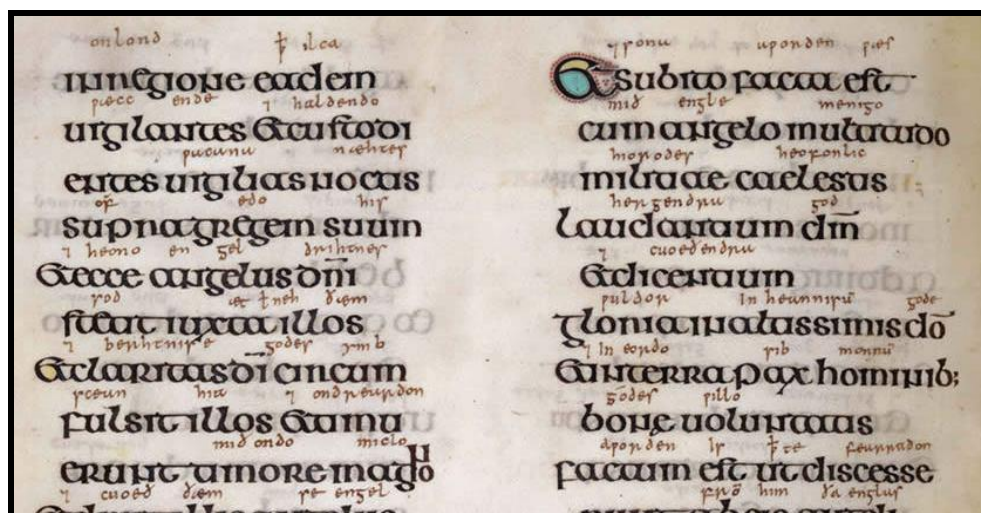 on lond ꝥ ilca
in regione eadem
wæcc ende ⁊ haldendo
uigilantes et custodi
wacana næhtes
entes uigilias noctis
of edo his
supra gregem suum
⁊ heono en gel drihtnes
et ecce angelus dn̅i
stod æt ł neh ðæm
stetit iuxta illos
⁊ berhtnisse godes ymb
et claritas di̅ circum
scean hia ⁊ ondreardon
fulsit illos et timu
mið ondo miclo
erunt timore magno
⁊ cuoeð ðæm se engel
uponden wæs
et subito facta est
mið engle menigo
cum angelo multitudo
heofonlic
militiae caelestis
hergendra god
laudantium dm̅
⁊ cuoeðendra
et dicentium
wuldor in heannisu̅ gode
gloria in altissimis do̅
⁊ in eorðo sib monnu̅
et in terra pax hominib;
godes willo
bone uoluntatis
aworden is ꝥte
factum est ut discesse
fro̅ him ða englas